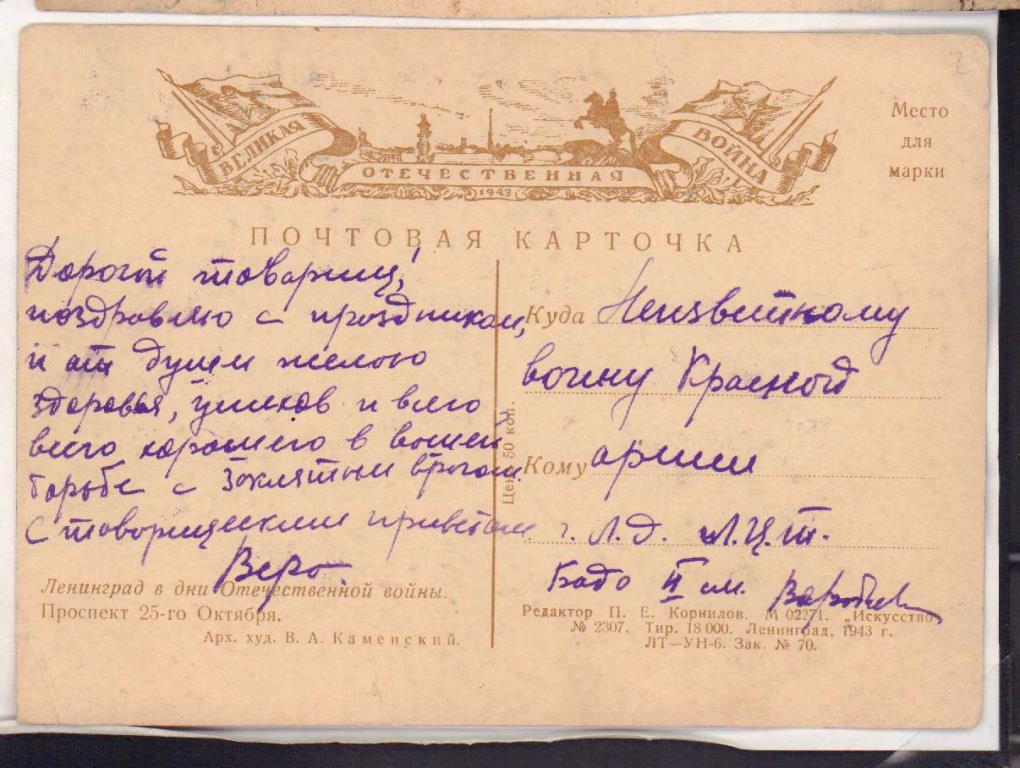 ВЕЛИКАЯ
ОТЕЧЕСТВЕННАЯ
ВОЙНА
1943
Место
для
марки
ПОЧТОВАЯ КАРТОЧКА
Дорогой товарищ!
поздравляю с праздником,
и от души желаю
здоровья, успехов и всего
всего хорошего в вашей
борьбе с заклятым врагом
С товарищеским приветом
Вера.
Ленинград в дни Отечественной войны.
Проспект 25-го Октября.
Арх. худ. В. А. Каменский.
Цена 50 коп.
Куда Неизвестному
воину Красной
Кому армии
г. Л.Д. Л.Ц.Т.
Бодо II см.
Редактор П. Е. Корнилов. М 02271. „Искусство"
№ 2307. Тир. 18 000. Ленинград, 1943 г.
ЛТ—УН-6. Зак. № 70.